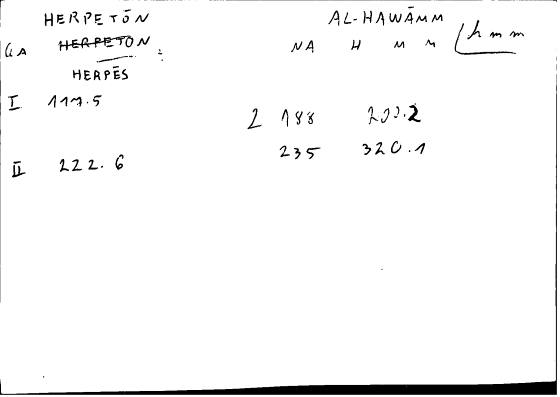 HERPETŌN AL-HAWĀMM
GA HERPETON : NA H M M hmm
HERPĒS
I 117.5
2 188 202.2
235 320.1
II 222.6